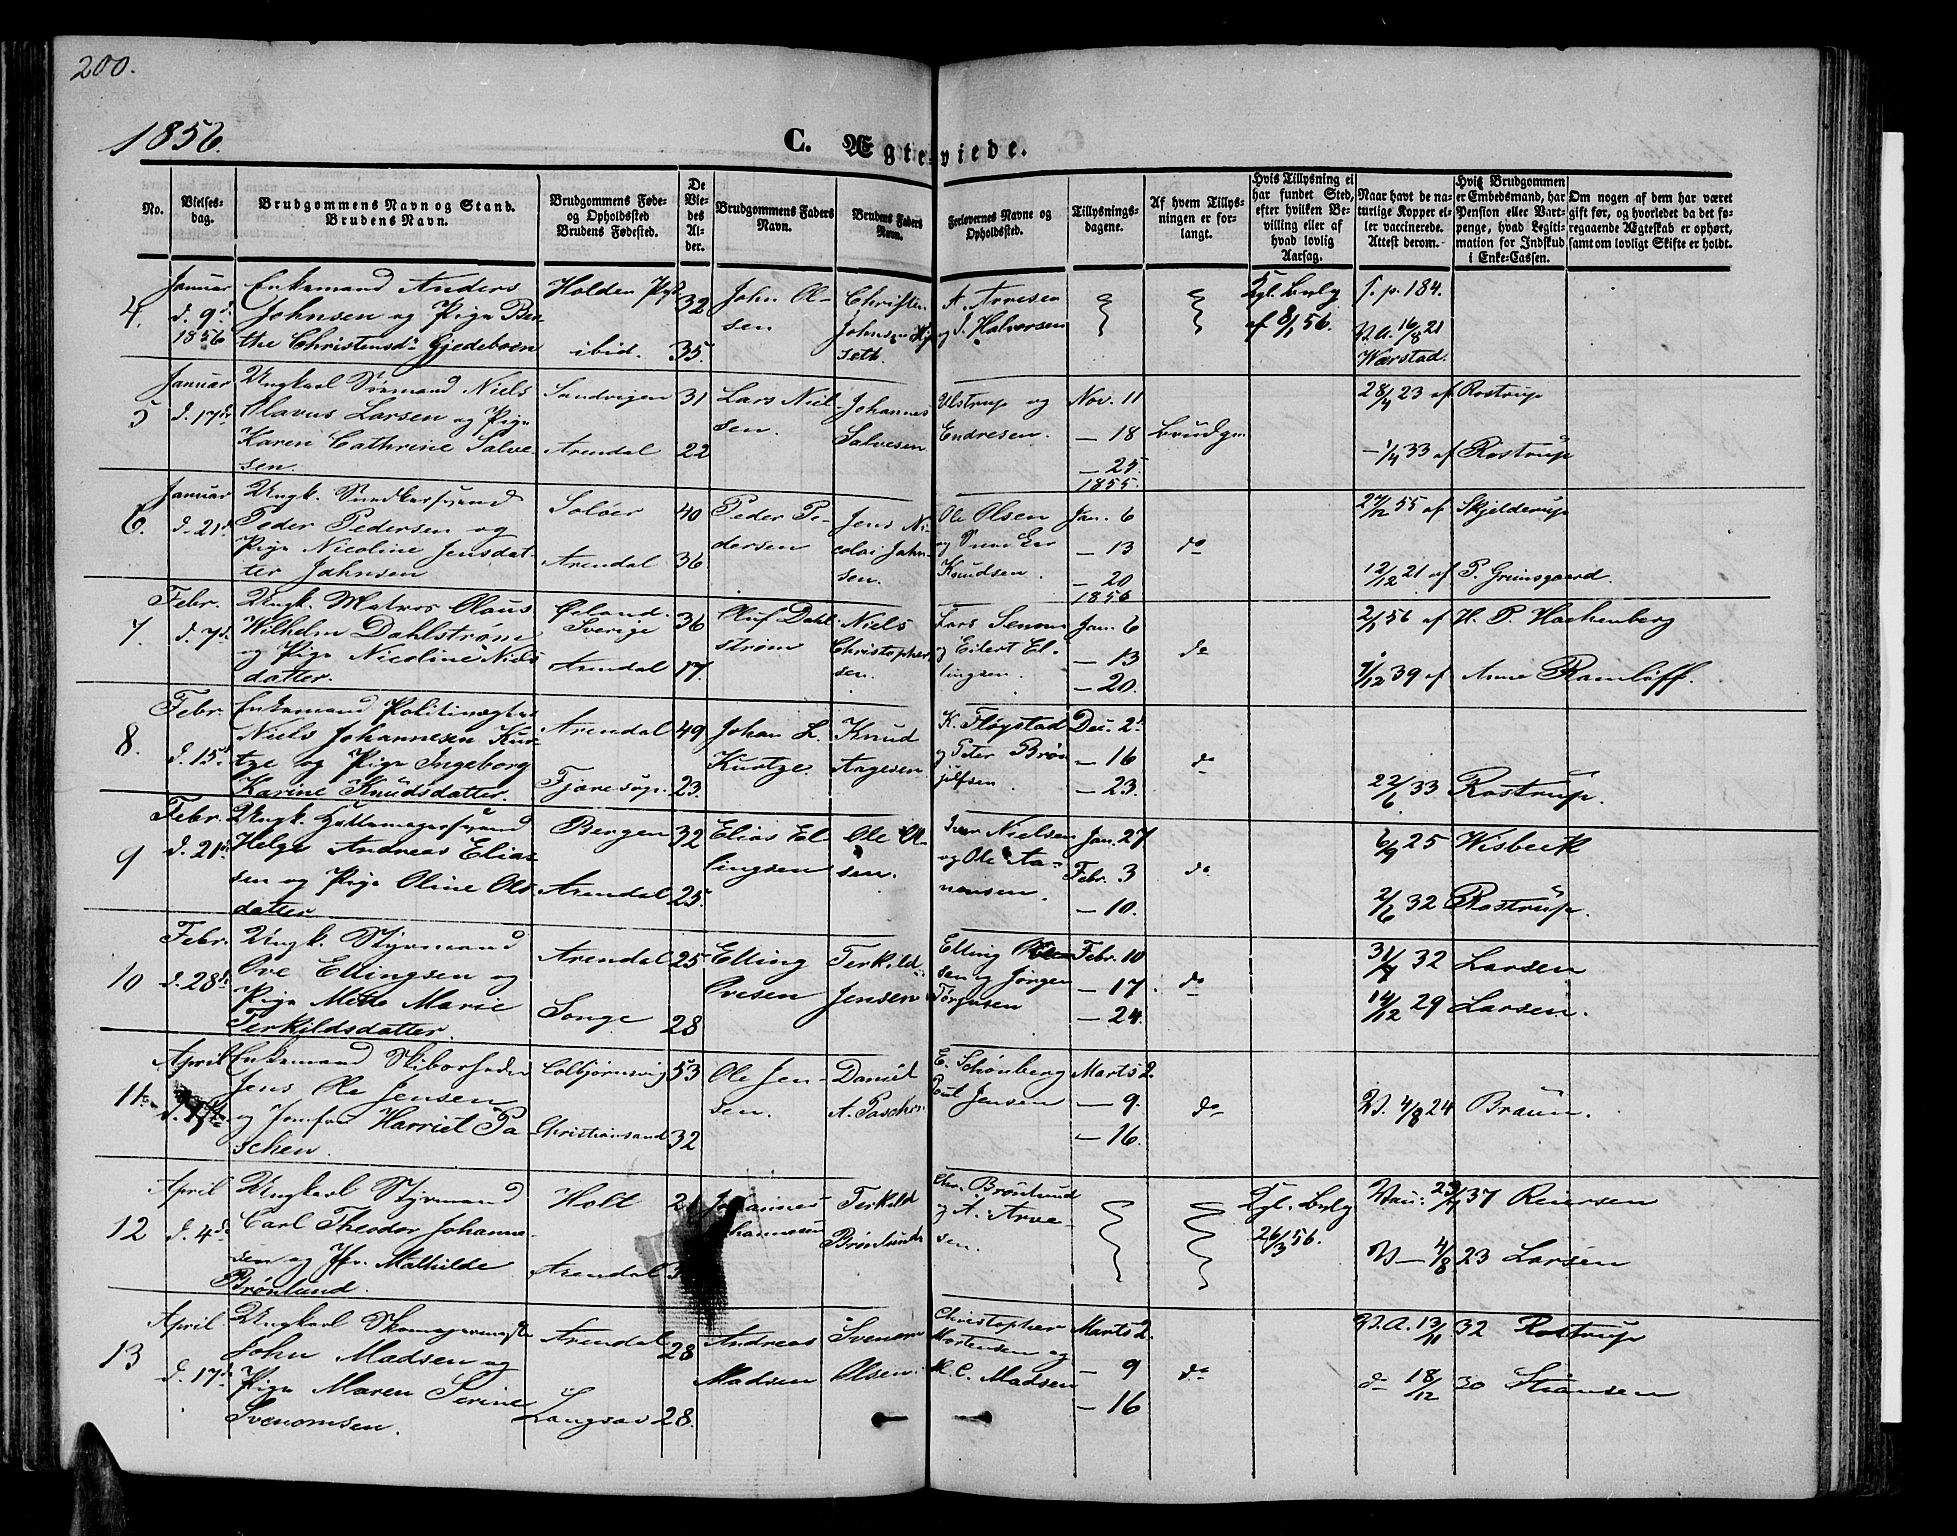 200.
1856.
C. Ægteviede.
No.
Vielsesdag.
Brudgommens Navn og Stand.
Brudens Navn.
Brudgommens Føde-
og Opholdssted
Brudens Fødested.
De
Vie-
des
Al-
der.
Brudgommens Faders
Navn.
Brudens Faders
Navn.
Forlovernes Navne og
Opholdssted.
Tillysnings-
dagene.
Af hvem Tillys-
ningen er for-
langt.
Hvis Tillysning ei
har fundet Sted,
efter hvilken Be-
villing eller af
hvad lovlig
Aarsag.
Naar havt de na-
turlige Kopper el-
ler vaccinerede.
Attest derom.
Hvis Brudgommen
er Embedsmand, har
Pension eller Vart-
penge, hvad Legiti-
mation for Indskud
i Enke-Cassen.
Om nogen af dem har været
gift før, og hvorledet da det fo-
regaaende Ægteskab er ophørt,
samt om lovligt Skifte er holdt.
4.
Januar
d. 9d
1856
Enkemand Anders
Johnsen og Pige Ber-
the Christensd.
Holden
ibid.
32
35.
John Ol-
sen
Christen
Johnsen
A. Arvesen
og J. Halvorsen
Kgl. Bvlg
af 8/1 56.
f. p. 184.
V.A. 16/8 21
Warstad.
5
Januar
d. 17d
Ungkarl Sømand Niels
Olavus Larsen og Pige
Karen Cathrine Salve-
sen.
Sandvigen
Arendal
31
22
Lars Niel-
sen.
Johannes
Salvesen
Ulstrup og
Endresen.
Nov. 11
— 18
— 25
1855.
Brudgm
28/4 23 af Rostrup
— 1/4 33 af Rostrup
6.
Januar
d. 21d
Ungk. Snedkersvend
Peder Pedersen og
Pige Nicoline Jensdat-
ter Jahnsen
Soløer
Arendal
40
36
Peder Pe-
dersen
Jens Ni-
colai Jahn-
sen.
Ole Olsen
og
Knudsen.
Jan. 6
— 13
— 20
1856
do
27/12 55 af Skjelderup
12/12 21 af P. Grimsgaard.
7.
Febr.
d. 7d
Ungk. Matros Olaus
Wilhelm Dahlstrøm
og Pige Nicoline Niels
datter.
Øeland
Sverige
Arendal
36
17.
Oluf Dahl-
strøm
Niels
Christopher-
sen.
Lars
og Eilert El-
lingsen.
Jan. 6
— 13
— 20.
do
2/1 56 af H. P. Hackenberg
1/12 39 af Anne Ramløff.
8.
Febr.
d. 15d
Enkemand Politivægter
Niels Johannesen Kur-
tze og Pige Ingeborg
Karine Knudsdatter.
Arendal
Fjære sogn.
49
23.
Johan L.
Kurtze.
Knud
Aagesen
K. Fløystad
og Peter Brÿn
julfsen.
Dec. 2.
— 16
— 23.
do
22/6 33 Rostrup.
9
Febr.
d. 21d
Ungk. Hattemagersvend
Helge Andreas Elias-
sen og Pige Oline Ols-
datter
Bergen
Arendal
32
25.
Elias El-
lingsen
Ole Ol-
sen.
Iver Nielsen
og Ole Aa-
nensen.
Jan. 27
Febr. 3
— 10.
do
6/9 25 Wisbech
2/6 32 Rostrup.
10
Febr.
d. 28d
Ungk. Styrmand
Ove Ellingsen og
Pige Mette Marie
Terkildsdatter.
Arendal
Songe
25
28
Elling
Ovesen
Terkild
Jensen
Elling
sen og Jørgen
Tørjusen
Febr. 10
— 17.
— 24.
do
31/7 32 Larsen
14/12 29 Larsen.
11
April
Enkemand Skibsreder
Jens Ole Jensen
og Jomfru Harriet Pa-
schen.
Colbjørnsvig
Christiansand
53
32
Ole Jen-
sen.
Daniel
A. Paschen
E. Schønberg
Poul Jensen
Marts 2.
— 9.
— 16.
do
V. 4/8 24 Braun.
12
April
d. 4d
Ungkarl Styrmand
Carl Theodor Johanne-
sen og Jfr. Mathilde
Brønlund.
Holt
Arendal
Johannes
Johannesen
Terkild
Brønlund
Chr. Brønlund
og A. Arve-
sen.
Kgl. Bvlg
26/3 56.
37 Reiersen
V — 4/8 23 Larsen
13
April
d. 17d
Ungkarl Skomagermester
John Madsen og
Pige Maren Serine
Svenomsen.
Arendal
Langsæ
28
28.
Andreas
Madsen
Svenom
Olsen.
Christopher
Mortensen og
M. C. Madsen
Marts 2.
— 9
— 16
do
V.A. 13/11 32 Rostrup
do 18/12 30